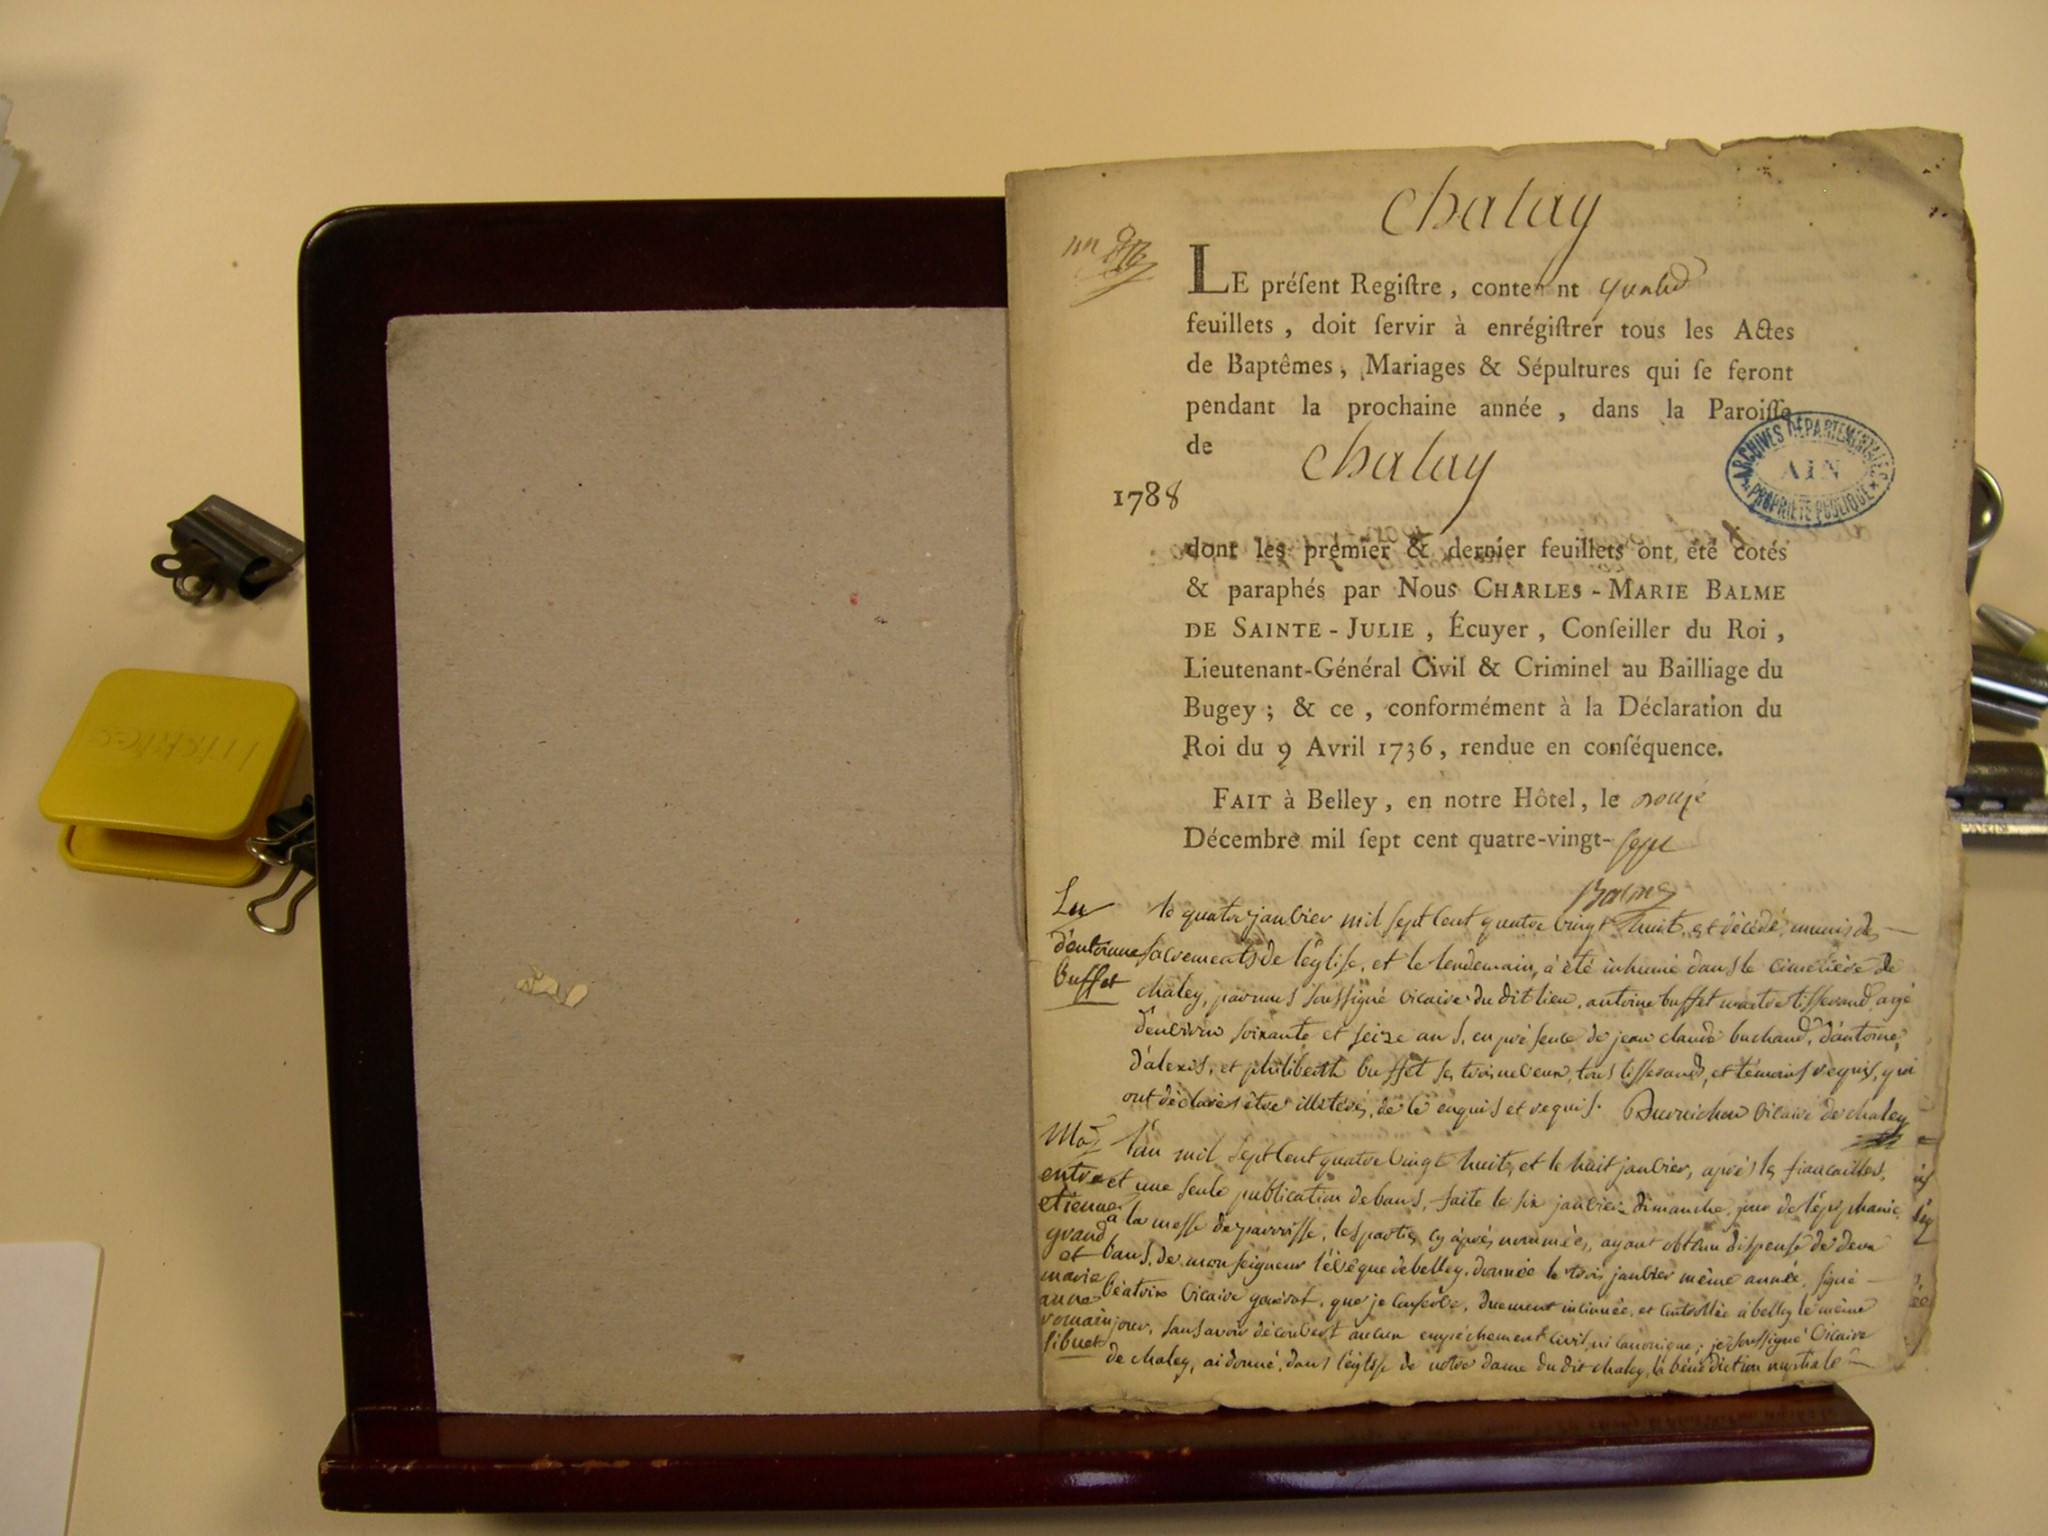 chalay
LE préſent Regiſtre, conten nt
feuillets, doit ſervir à enrégiſtrer tous les Actes
de Baptêmes, Mariages & Sépultures qui ſe feront
pendant la prochaine année, dans la Paroiſſe
de chalay
ARCHIVES DÉPARTEMENTALES
AIN
PROPRIÉTÉ PUBLIQUE
1788
dont les premier & dernier feuillets ont été cotés
& paraphés par Nous CHARLES-MARIE BALME
DE SAINTE-JULIE, Écuyer, Conſeiller du Roi,
Lieutenant-Général Civil & Criminel au Bailliage du
Bugey; & ce, conformément à la Déclaration du
Roi du 9 Avril 1736, rendue en conſéquence.
FAIT à Belley, en notre Hôtel, le
Décembre mil ſept cent quatre-vingt-sept
Balme
le quatre janvier mil sept cent quatre vingt huit, est décédé, munis des
d'antoinne sacrements de l'église, et le lendemain, à été inhumé dans le cimetière de
buffet chaley, par nous soussigné vicaire du dit lieu, antoine buffet maitre tisserand, agé
d'environ soixante et seize ans, en présence de jean claude buchand, d'antoine,
d'alexis, et philiberth buffet ses trois neveux, tous tisserands, et témoins requis, qui
ont déclarés être illiterés, de ce enquis et requis. vicaire de chaley
l'an mil sept cent quatre vingt huit, et le huit janvier, après les fiancailles,
entre et une seule publication de bans, faite le six janvier dimanche, jour de l'épiphanie
etienne à la messe de parroisse, les parties cy après nommées, ayant obtenu dispense de deux
grand
et bans, de monseigneur l'évêque de belley, donnée le trois janvier même année, signé
marie
anne vicaire général, que je conserve, duement insinuée, et controllée à belley le même
romain jour, sans avoir découvert aucun empêchement civil, ni canonique; je soussigné vicaire
sibuet de chaley, ai donné, dans l'église de notre dame du dit chaley, la bénédiction nuptiale